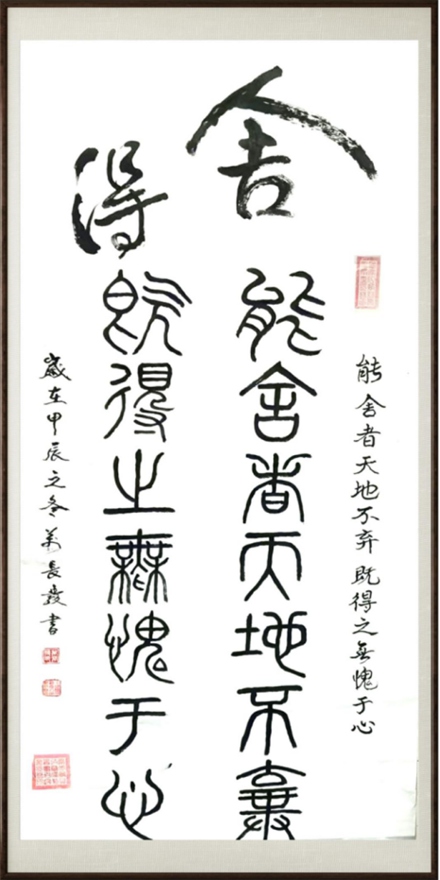 能舍者天地不弃既得之無愧于心
舍得
能舍者天地不棄
既得之無愧于心
歲在甲辰之冬 長發書